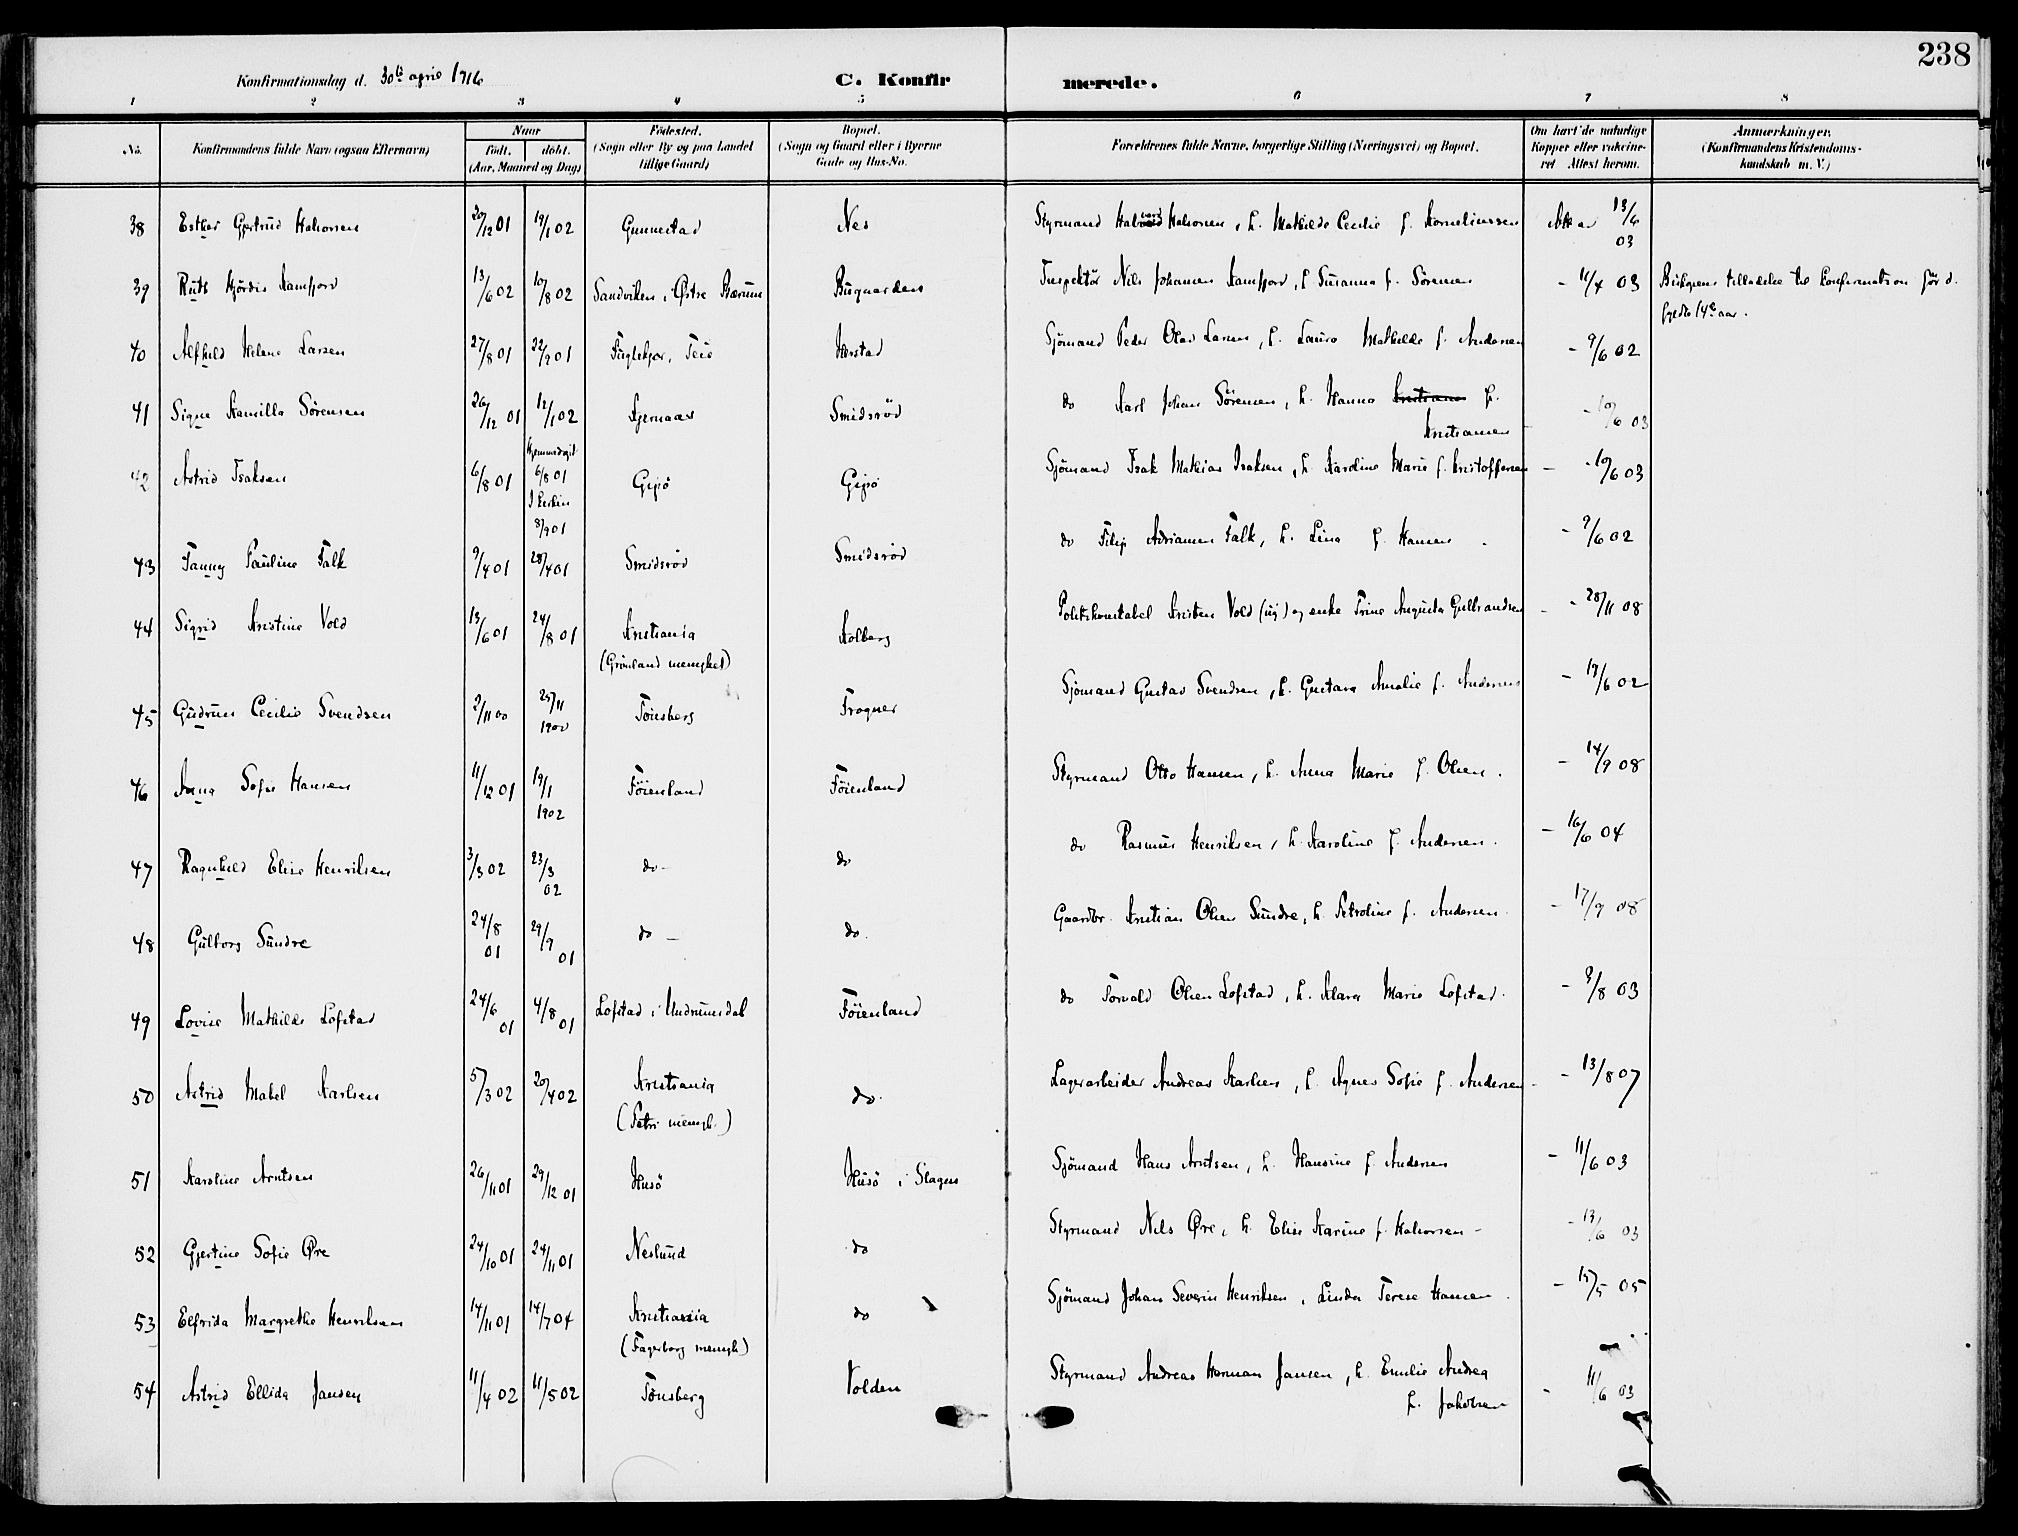 238
Konfirmationsdag d. 30te april 1916
C. Konfirmerede.
1 2 3 4 5 6 7 8
No.
Konfirmandens fulde Navn (ogsaa Efternavn)
Naar
født. døbt.
(Aar, Maaned og Dag)
Fødested.
(Sogn eller By og paa Landet
tillige Gaard)
Bopæl.
(Sogn og Gaard eller i Byerne
Gade og Hus-No.
Forældrenes fulde Navne, borgerlige Stilling (Næringsvei) og Bopæl.
Om havt de naturlige
Kopper eller vakcine-
ret Attest herom.
Anmærkninger.
(Konfirmandens Kristendoms-
kundskab m. V.)
38 Esther Gjertrud Halvorsen 20/12 01 19/1 02 Gunnestad Nes Styrmand Halvard Halvorsen, h. Mathilde Cecilie f. Korneliussen Att av 13/6 03
39 Ruth Hjördis Kamfjord 13/6 02 10/8 02 Sandviken i Østre Bærum Bugaarden Inspektör Nils Johannes Kamfjord, h Susanna f. Sörensen - 11/4 03 Biskopens tilladelse til konfirmation för d.
fyldte 14de aar.
40 Alfhild Helene Larsen 27/8 01 22/9 01 Fuglekjær, Teie Herstad Sjömand Peder Olav Larsen, h. Laura Mathilde f. Andersen - 9/6 02
41 Signe Kamilla Sörensen 26/12 01 12/1 02 Kjernaas Smidsröd do Karl Johan Sörensen, h. Hanna f.
Kristiansen - 10/6 03
42 Astrid Isaksen 6/8 01 Hjemmedöpt 6/8 01 I kirken 8/9 01 Gipö Gipö Sjömand Isak Mathias Isaksen, h Karoline Marie f. Kristoffersen - 10/6 03
43 Fanny Pauline Falk 9/4 01 28/4 01 Smidsröd Smidsröd do Filip Adriansen Falk, h. Lina f. Hansen - 9/6 02
44 Sigrid Kristine Vold 13/6 01 24/8 01 Kristiania
(Grönland menighet) Kolberg Politikonstabel Kristen Vold (ug) og enke Trine Augusta Gulbrandsen - 28/11 08
45 Gudrun Cecilie Svendsen 2/11 00 25/11 1900 Tönsberg Trogner Sjömand Gustav Svendsen, h. Gustava Amalie f. Andersen - 19/6 02
46 Anna Sofie Hansen 11/12 01 19/1 1902 Föienland Föienland Styrmand Otto Hansen, h. Anna Marie f. Olsen. - 14/9 08
47 Ragnhild Elise Henriksen 3/3 02 23/3 02 do - do do Rasmus Henriksen, h. Karoline f. Andersen. - 16/6 04
48 Gulborg Sundre 24/8 01 29/9 01 do - do. Gaardbr. Kristian Olsen Sundre, h. Petroline f. Andersen - 17/9 08
49 Lovise Mathilde Lofstad 24/6 01 4/8 01 Lofstad i Undrumsdal Föienland do Torvald Olsen Lofstad, h. Klara Marie Lofstad. - 3/8 03
50 Astrid Mabel Karlsen 5/3 02 20/4 02 Kristiania
(Petri menigh.) do. Lagerarbeider Andreas Karlsen, h. Agnes Sofie f. Andersen - 13/8 07
51 Karoline Arntsen 26/11 01 29/12 01 Husö Husö i Slagen Sjömand Hans Arntsen, h. Hansine f. Andersen - 11/6 03
52 Gjertine Sofie Øre 24/10 01 24/11 01 Neslund do Styrmand Nils Øre, h. Elise Karine f. Halvorsen - - 13/6 03
53 Elfrida Margrethe Henriksen 14/11 01 14/7 04 Kristiania
(Fagerborg menigh.) do Sjömand Johan Severin Henriksen, Linda Terese Hansen. - 15/5 05
54 Astrid Ellida Jansen 11/4 02 11/5 02 Tönsberg Volden Styrmand Andreas Herman Jansen, h. Emilie Andrea
f. Jakobsen - 11/6 03